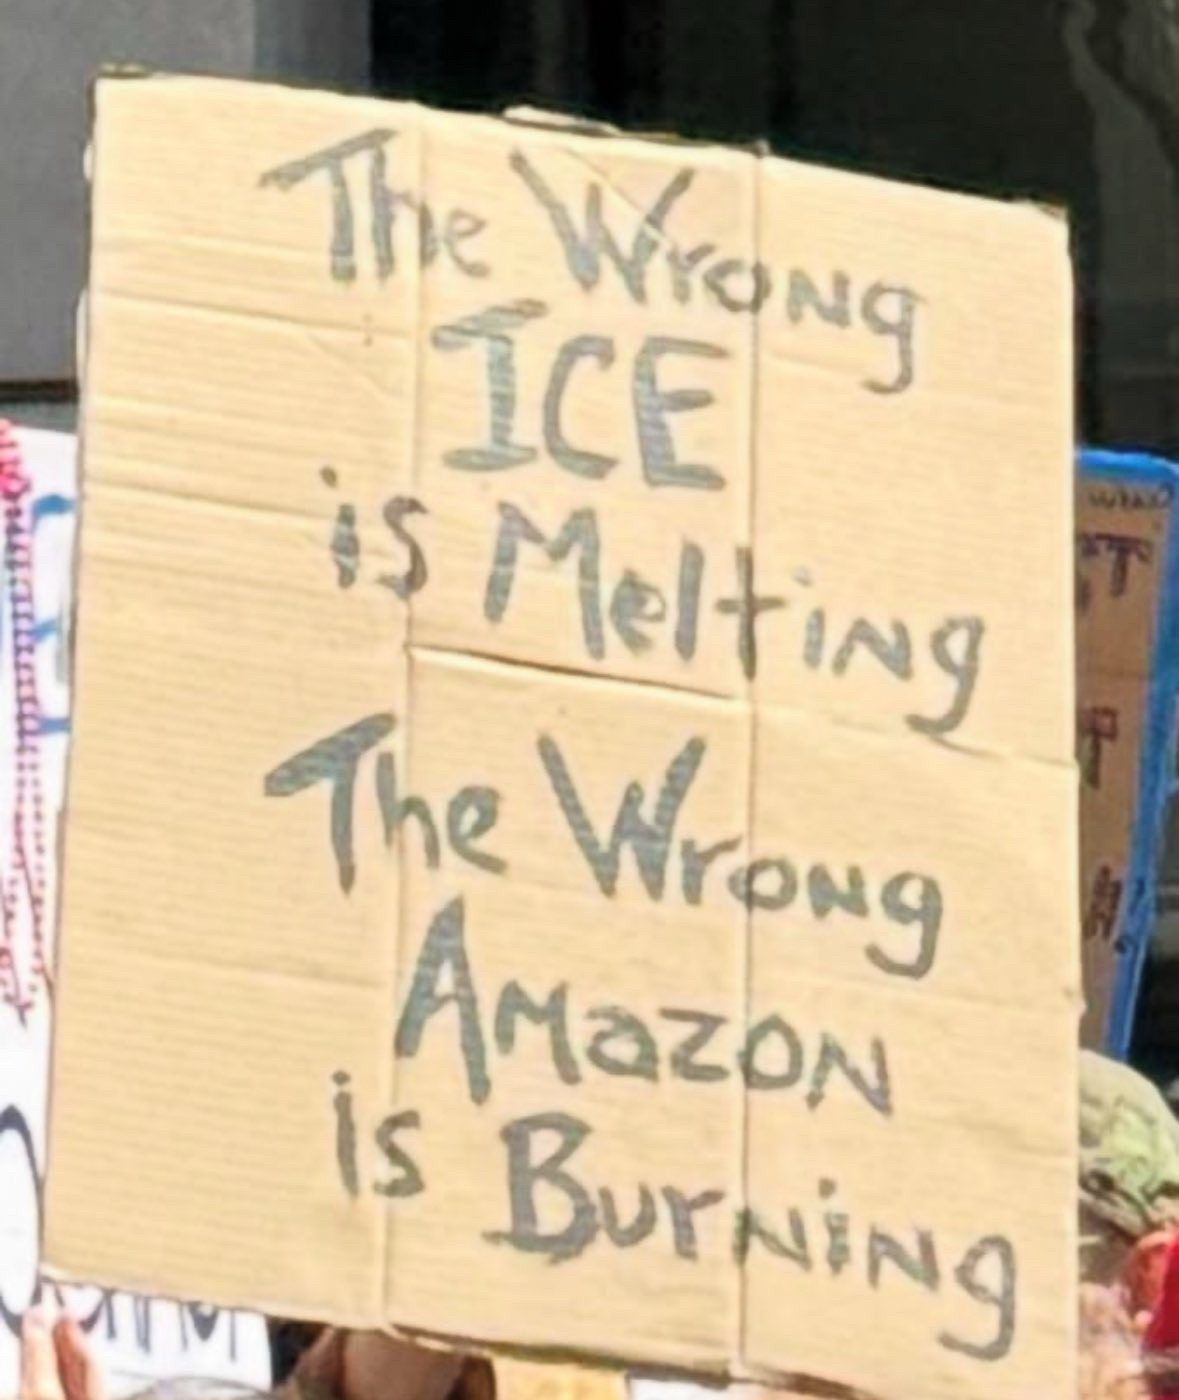 The Wrong
ICE
is Melting
The Wrong
Amazon
is Burning